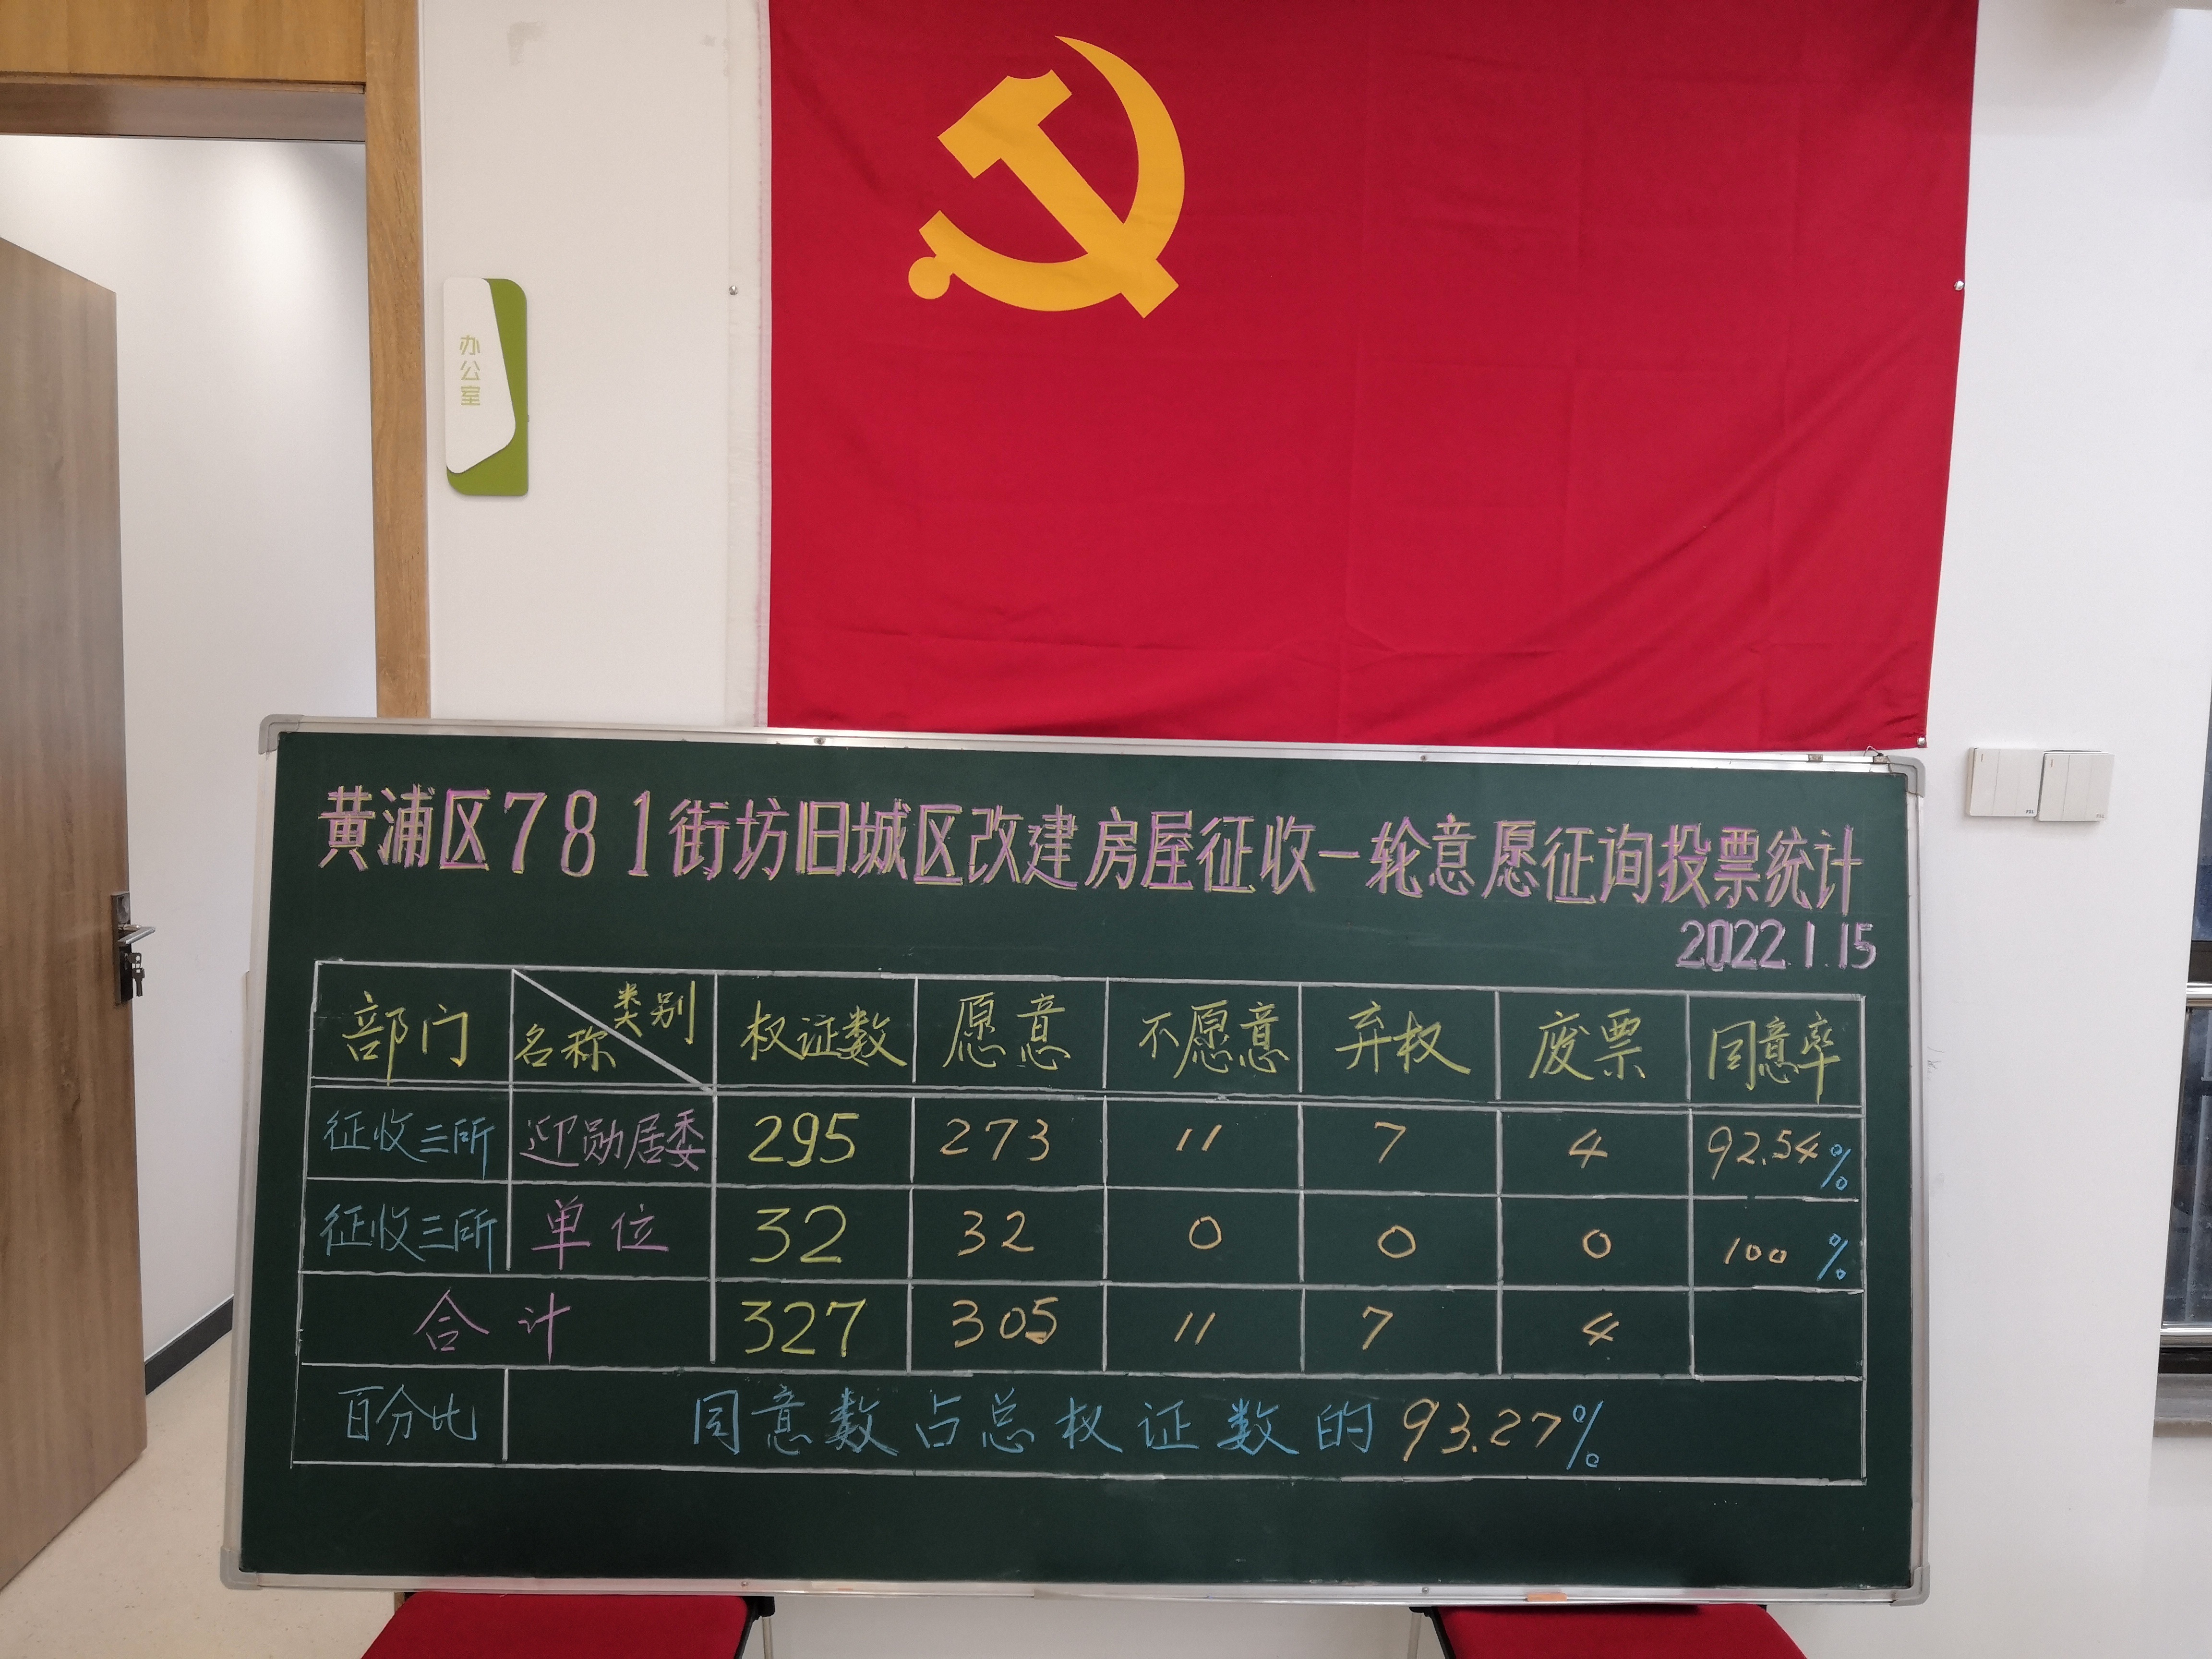 办公室
黄浦区781街坊旧城区改建房屋征收一轮意愿征询投票统计
2022.1.15
部门 名称 类别 权证数 愿意 不愿意 弃权 废票 同意率
征收三所 迎勋居委 295 273 11 7 4 92.54%
征收三所 单位 32 32 0 0 0 100%
合计 327 305 11 7 4
百分比 同意数占总权证数的93.27%